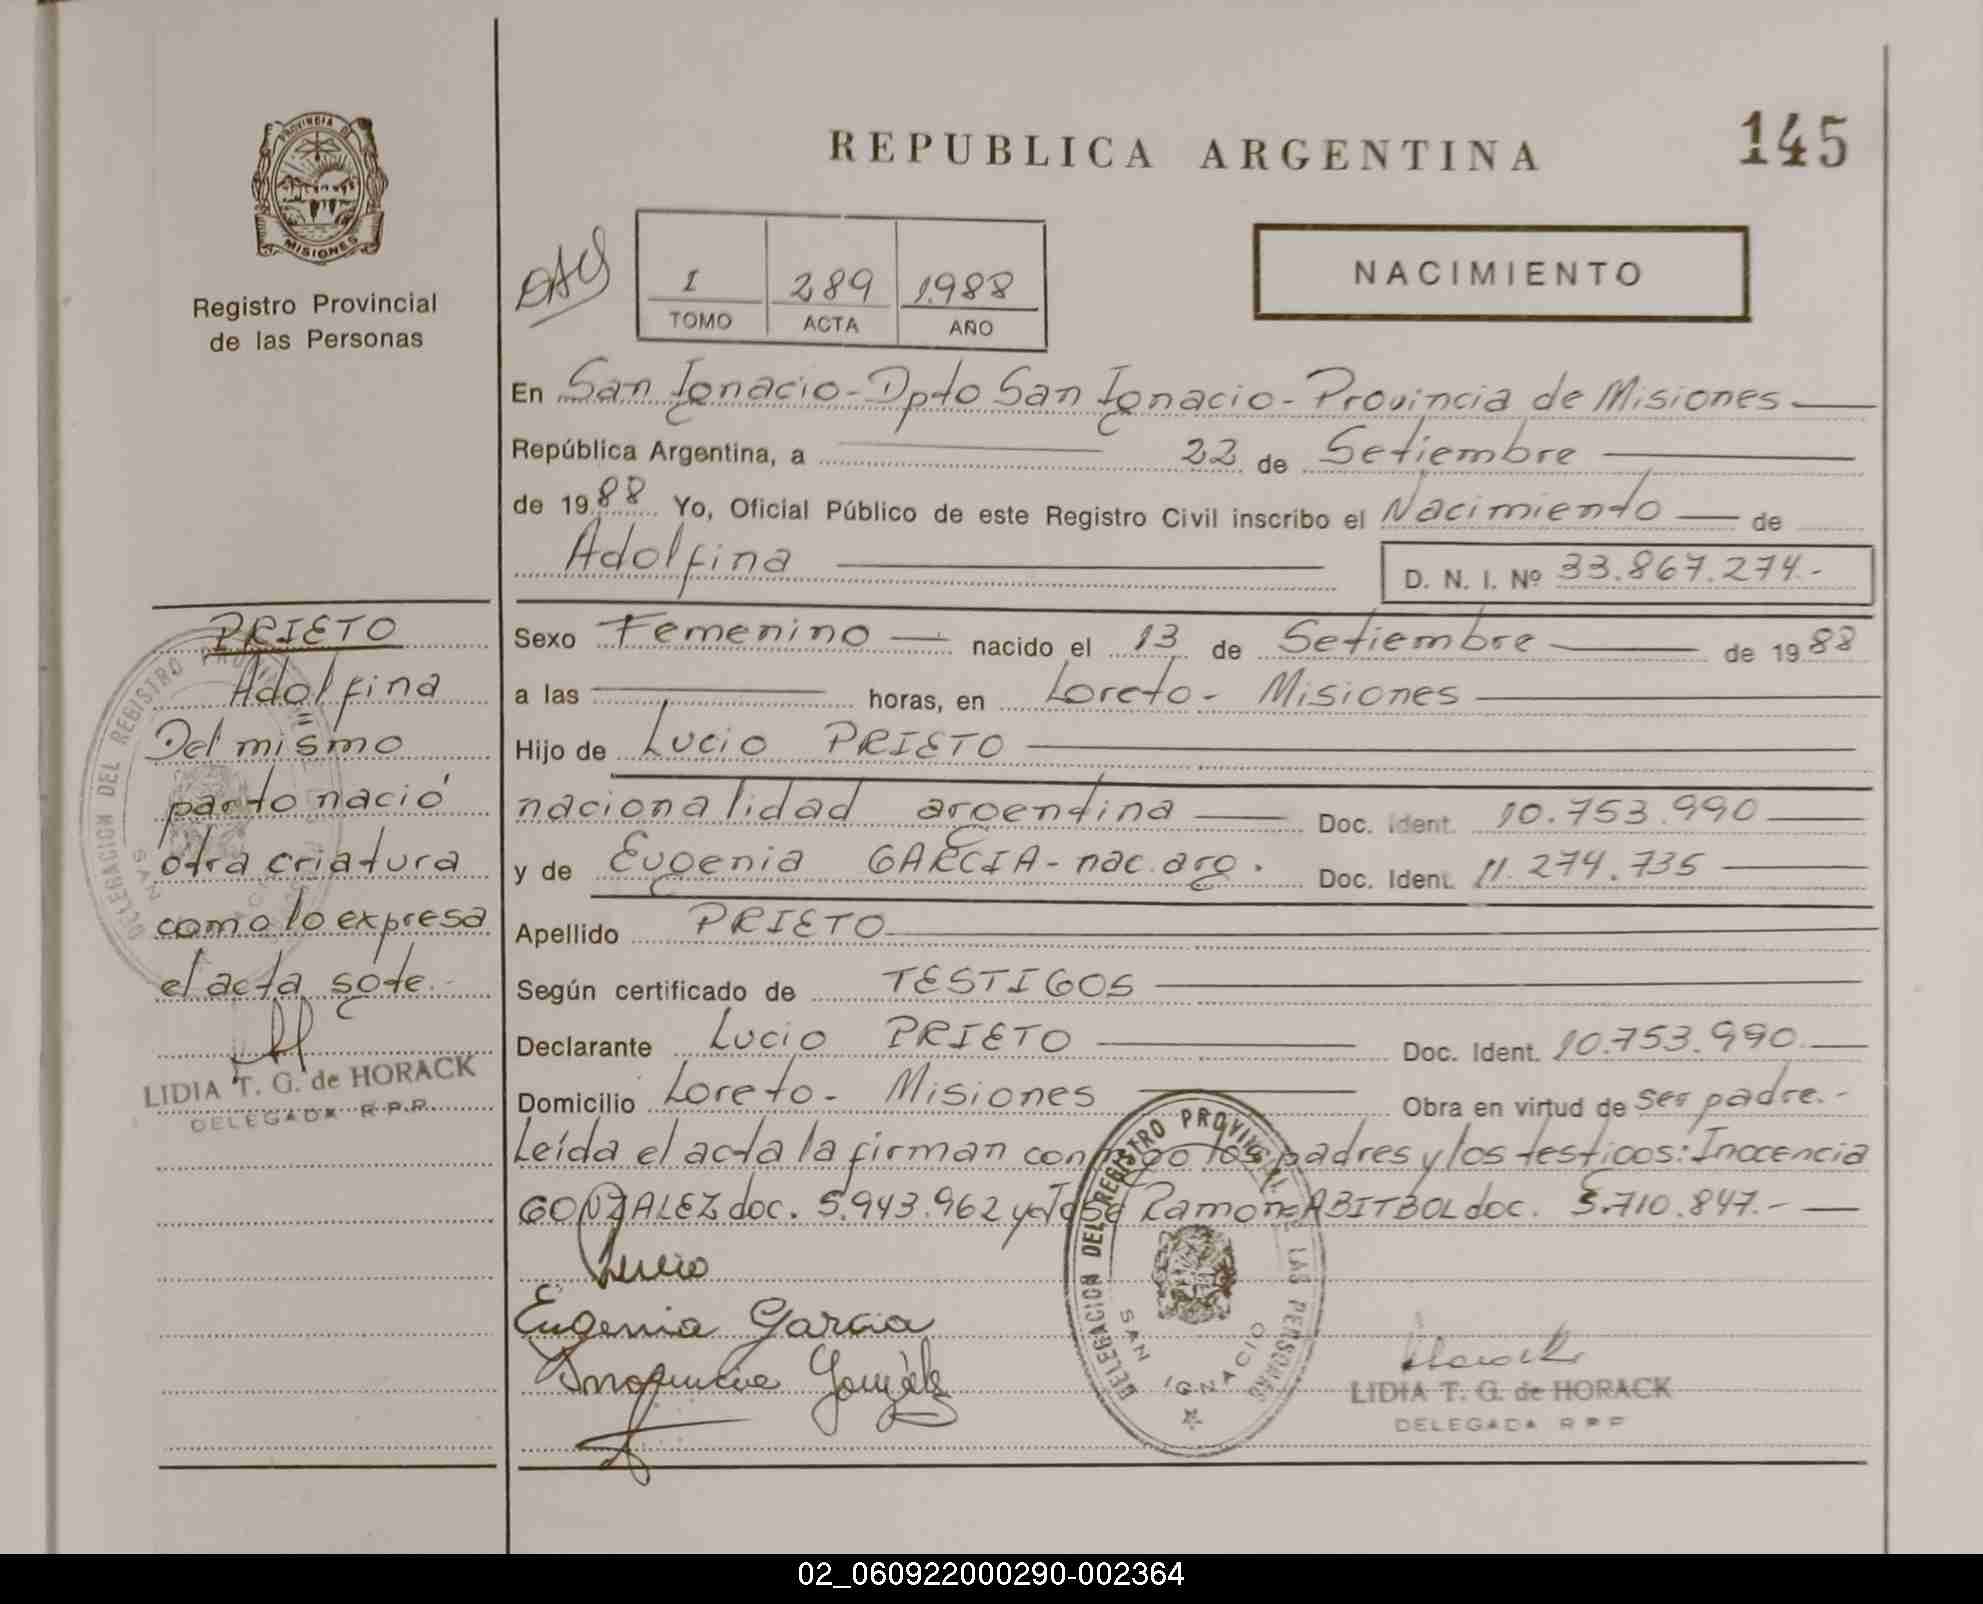 PROVINCIA DE
MISIONES
Registro Provincial
de las Personas
REPUBLICA ARGENTINA
145
1 289 1988
TOMO ACTA AÑO
NACIMIENTO
En San Ignacio - Dpto San Ignacio - Provincia de Misiones
República Argentina, a 22 de Setiembre
de 1988 Yo, Oficial Público de este Registro Civil inscribo el Nacimiento de
Adolfina
D. N. I. Nº 33.867.274.-
Sexo Femenino nacido el 13 de Setiembre de 1988
a las horas, en Loreto - Misiones
Hijo de Lucio PRIETO
nacionalidad argentina Doc. Ident. 10.753.990
y de Eugenia GARCIA - nac. arg. Doc. Ident. 11.274.735
Apellido PRIETO
Según certificado de TESTIGOS
Declarante Lucio PRIETO Doc. Ident. 10.753.990
Domicilio Loreto - Misiones Obra en virtud de ser padre.-
Leída el acta la firman conmigo los padres y los testigos: Inocencia
GONZALEZ doc. 5.943.962 y José Ramon ABITBOL doc. 5.710.847.-
Lucio
Eugenia Garcia
DELEGACION DEL REGISTRO PROVINCIAL DE LAS PERSONAS
SAN IGNACIO
LIDIA T. G. de HORACK
DELEGADA R P P
PRIETO
Adolfina
Del mismo
parto nació
otra criatura
como lo expresa
el acta sgte.-
LIDIA T. G. de HORACK
DELEGADA R.P.P.
DELEGACION DEL REGISTRO
SAN
02_060922000290-002364